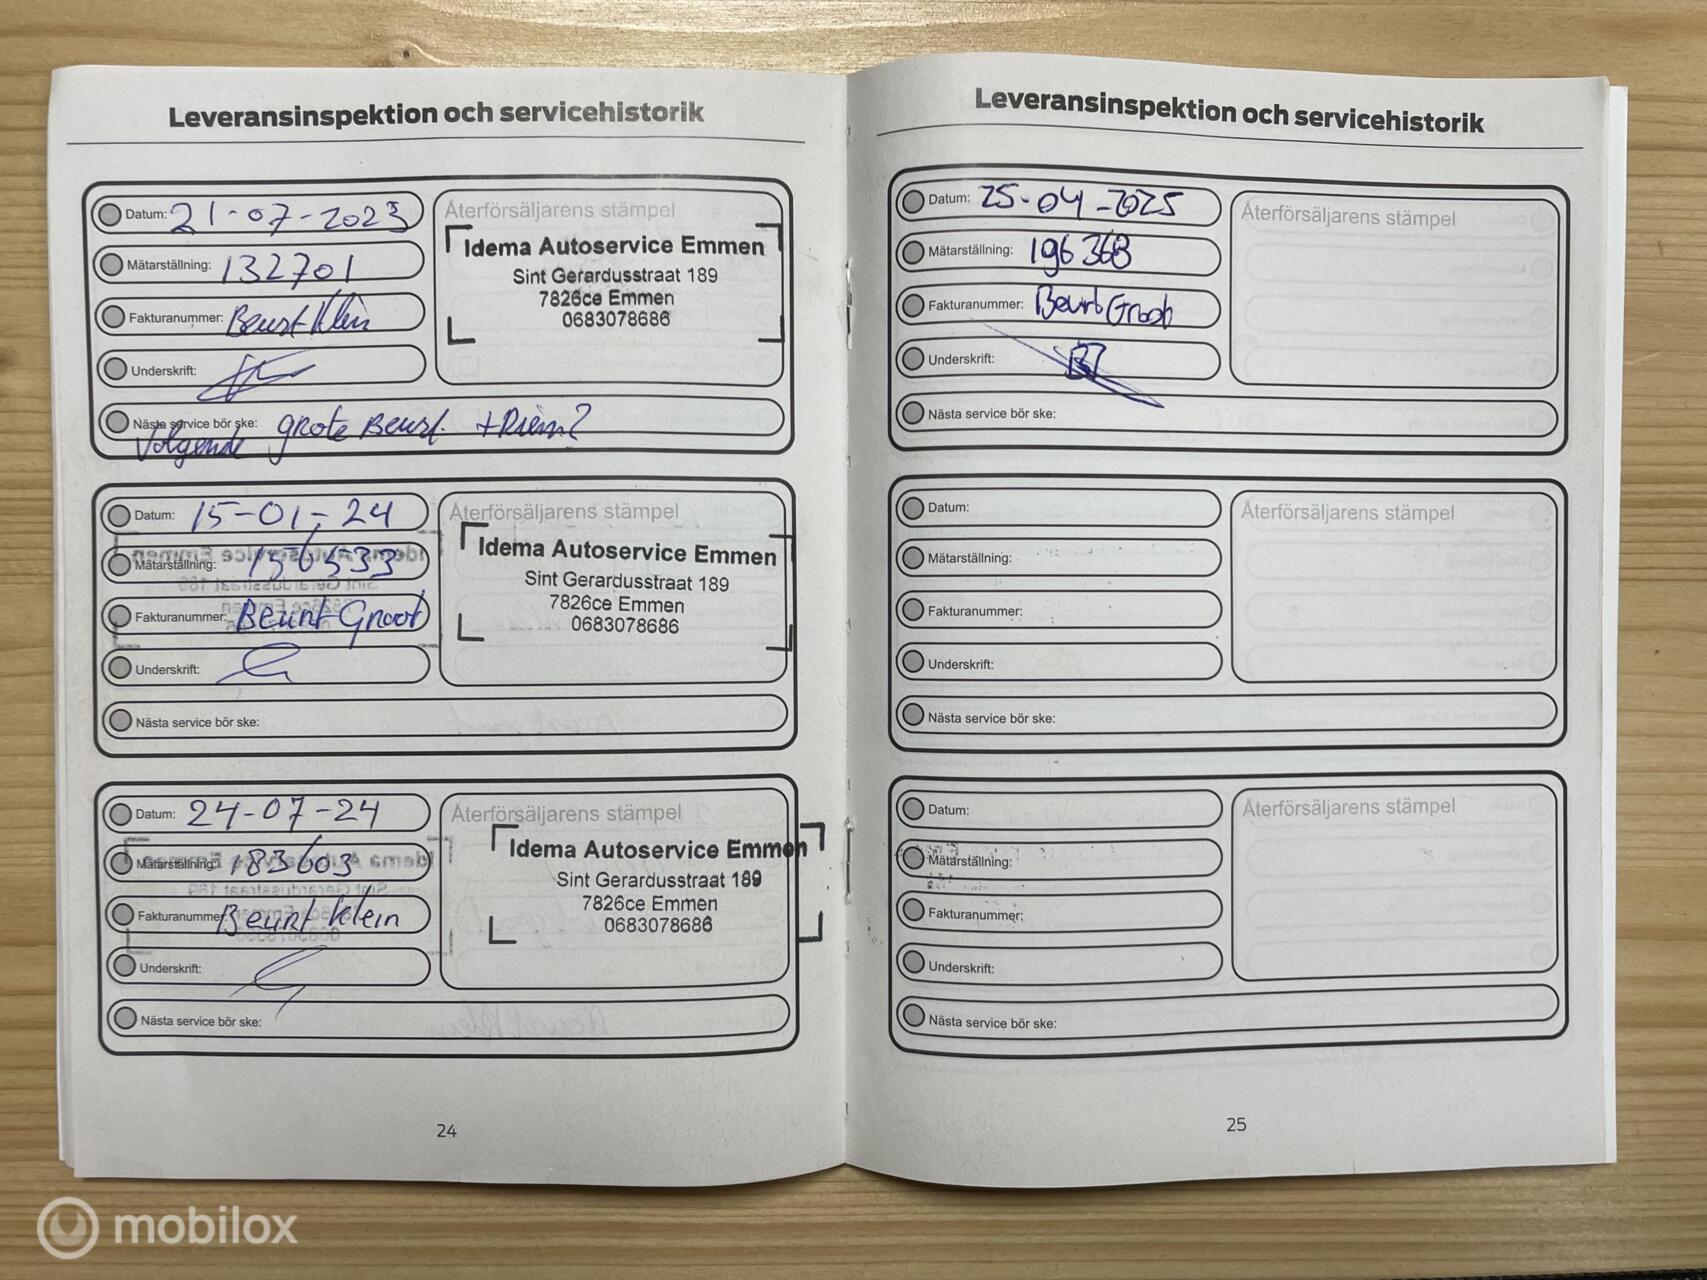 Leveransinspektion och servicehistorik
Datum: 21-07-2023
Mätarställning: 132701
Fakturanummer: Beurt Klein
Underskrift:
Nästa service bör ske: grote Beurt. + Riem?
Volgende
Återförsäljarens stämpel
Idema Autoservice Emmen
Sint Gerardusstraat 189
7826ce Emmen
0683078686
Datum: 15-01-24
Mätarställning: 156533
Fakturanummer: Beurt Groot
Underskrift:
Nästa service bör ske:
Återförsäljarens stämpel
Idema Autoservice Emmen
Sint Gerardusstraat 189
7826ce Emmen
0683078686
Datum: 24-07-24
Mätarställning: 183603
Fakturanummer: Beurt klein
Underskrift:
Nästa service bör ske:
Återförsäljarens stämpel
Idema Autoservice Emmen
Sint Gerardusstraat 189
7826ce Emmen
0683078686
24
Leveransinspektion och servicehistorik
Datum: 25-04-2025
Mätarställning: 196368
Fakturanummer: Beurt Groot
Underskrift:
Nästa service bör ske:
Återförsäljarens stämpel
Datum:
Mätarställning:
Fakturanummer:
Underskrift:
Nästa service bör ske:
Återförsäljarens stämpel
Datum:
Mätarställning:
Fakturanummer:
Underskrift:
Nästa service bör ske:
Återförsäljarens stämpel
25
mobilox